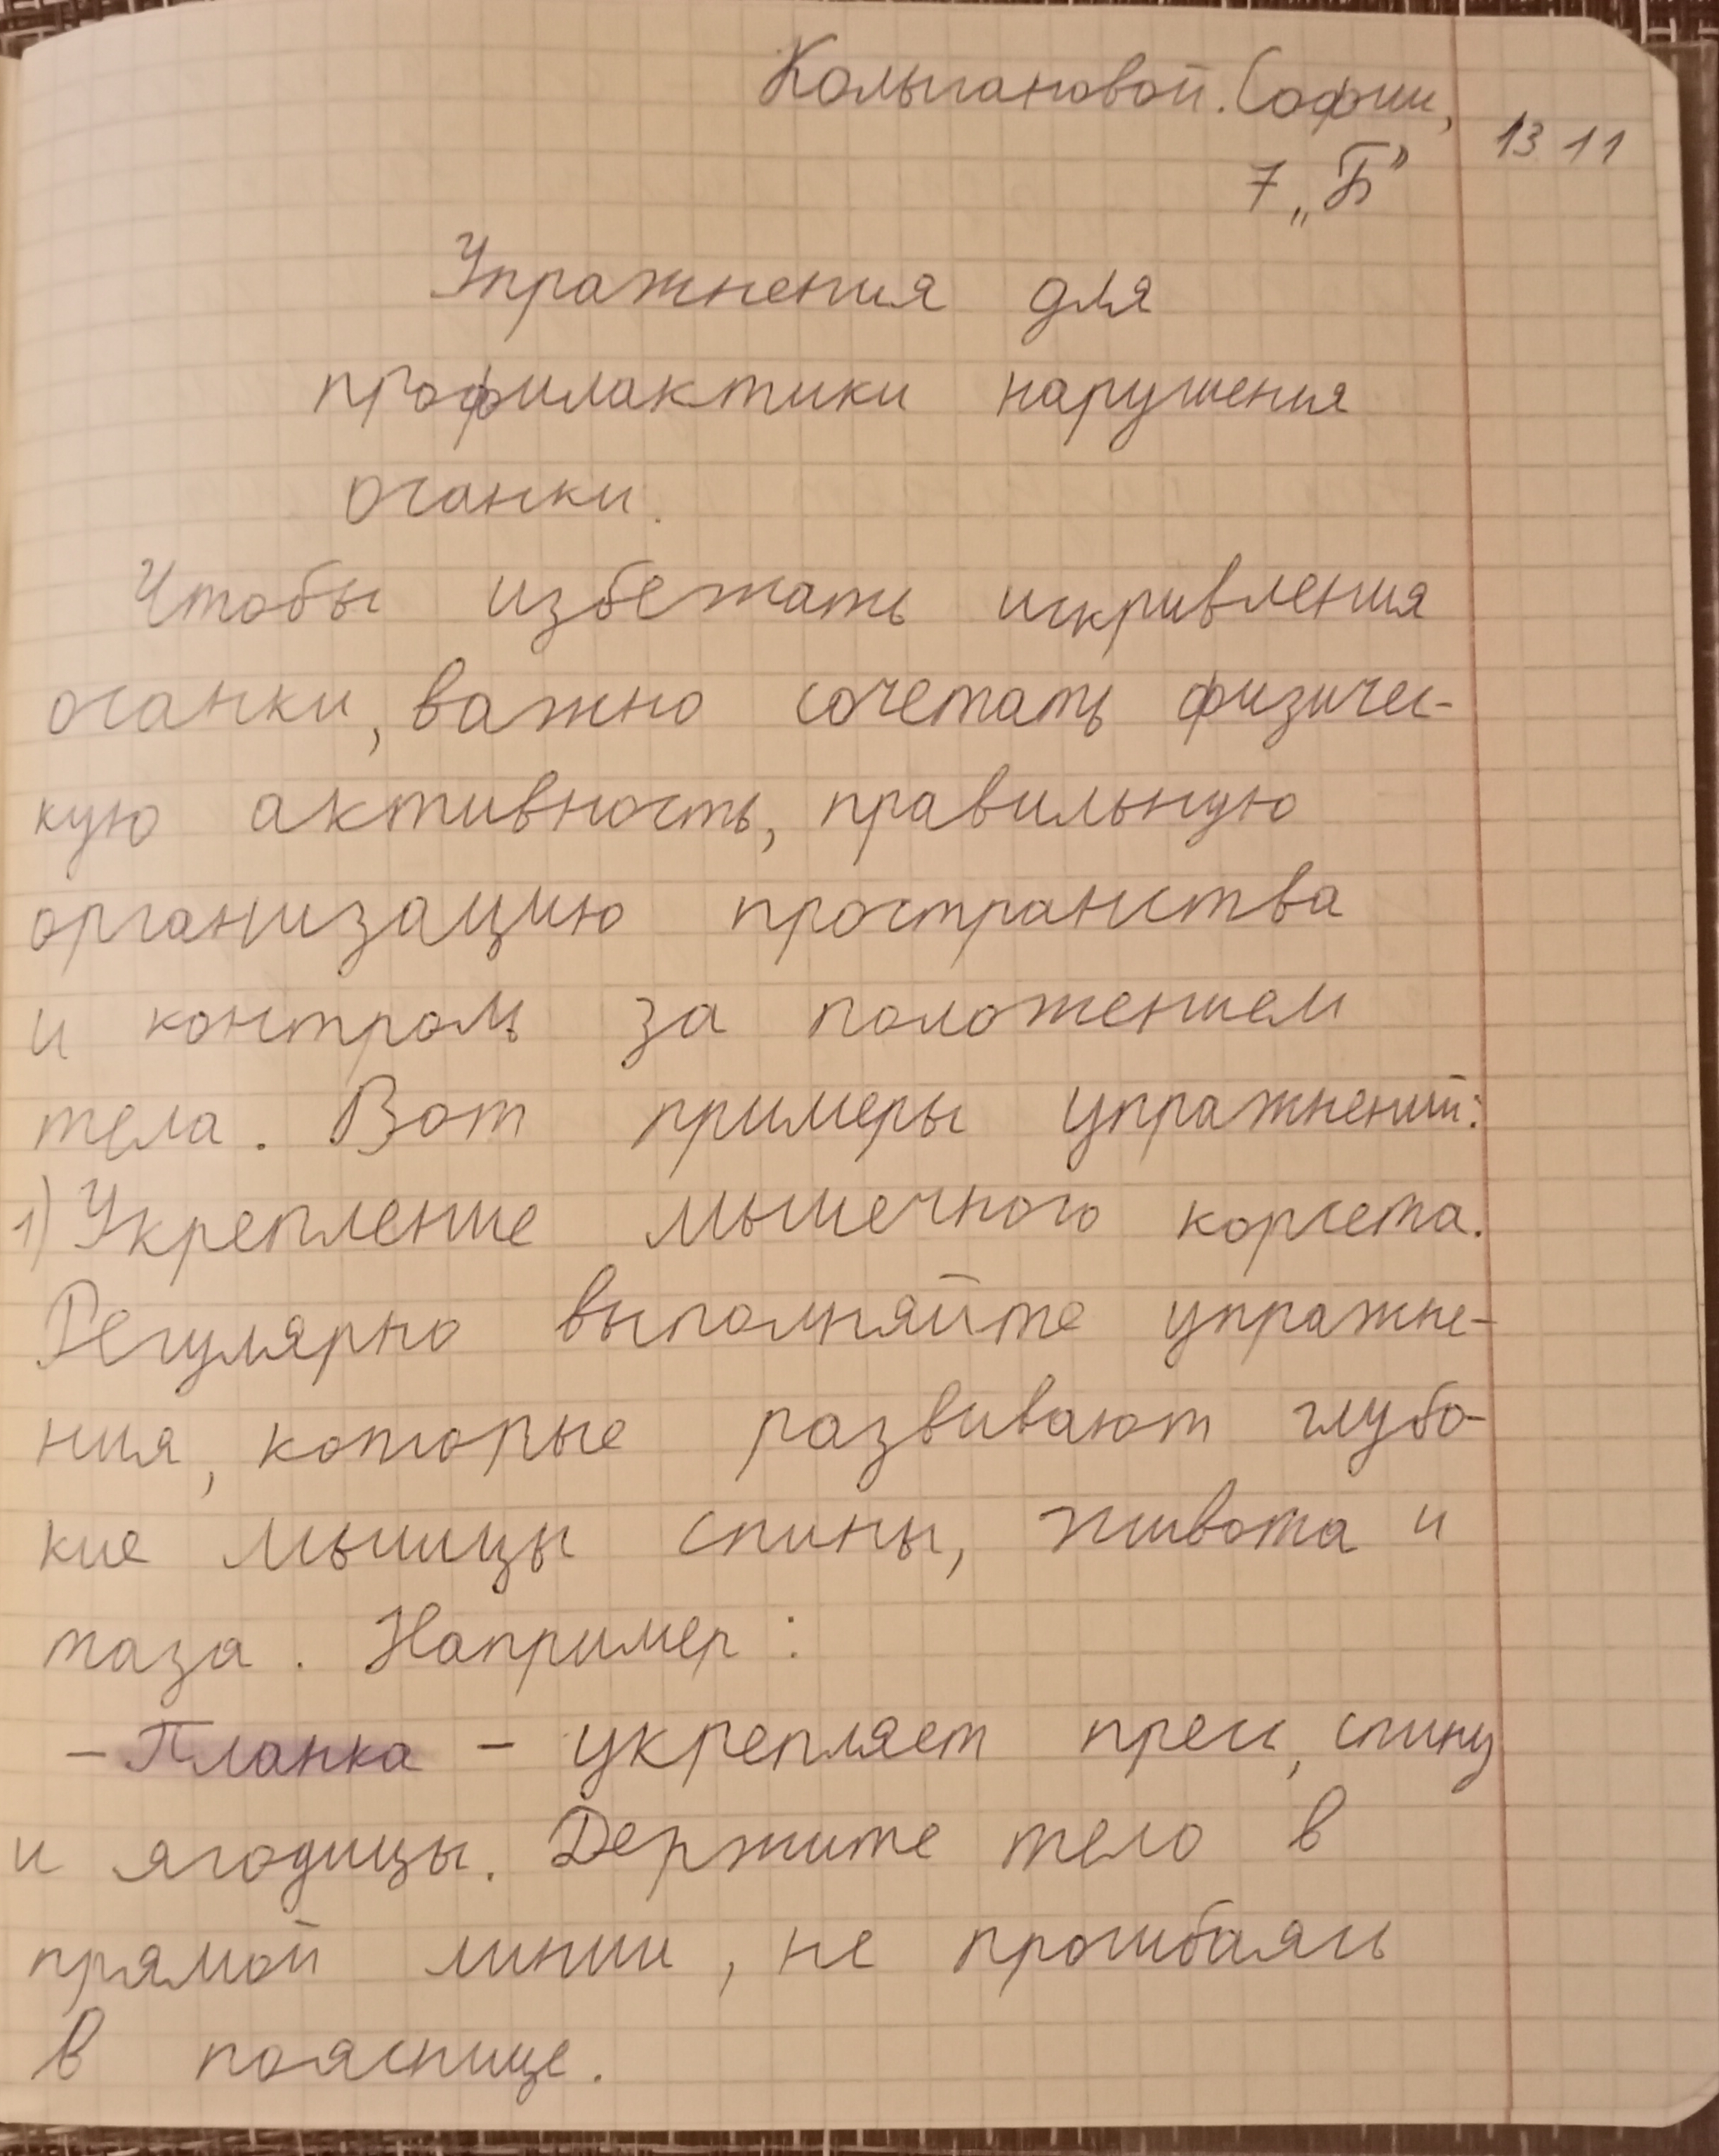 Колычановой. Софии,
13 11
7 „Б”
Упражнения для
профилактики нарушения
осанки.
Чтобы избежать искривления
осанки, важно сочетать физичес-
кую активность, правильную
организацию пространства
и контроль за положением
тела. Вот примеры упражнений:
1) Укрепление мышечного корсета.
Регулярно выполняйте упражне-
ния, которые развивают глубо-
кие мышцы спины, живота и
таза. Например:
- Планка - укрепляет пресс, спину
и ягодицы. Держите тело в
прямой линии, не прогибаясь
в пояснице.